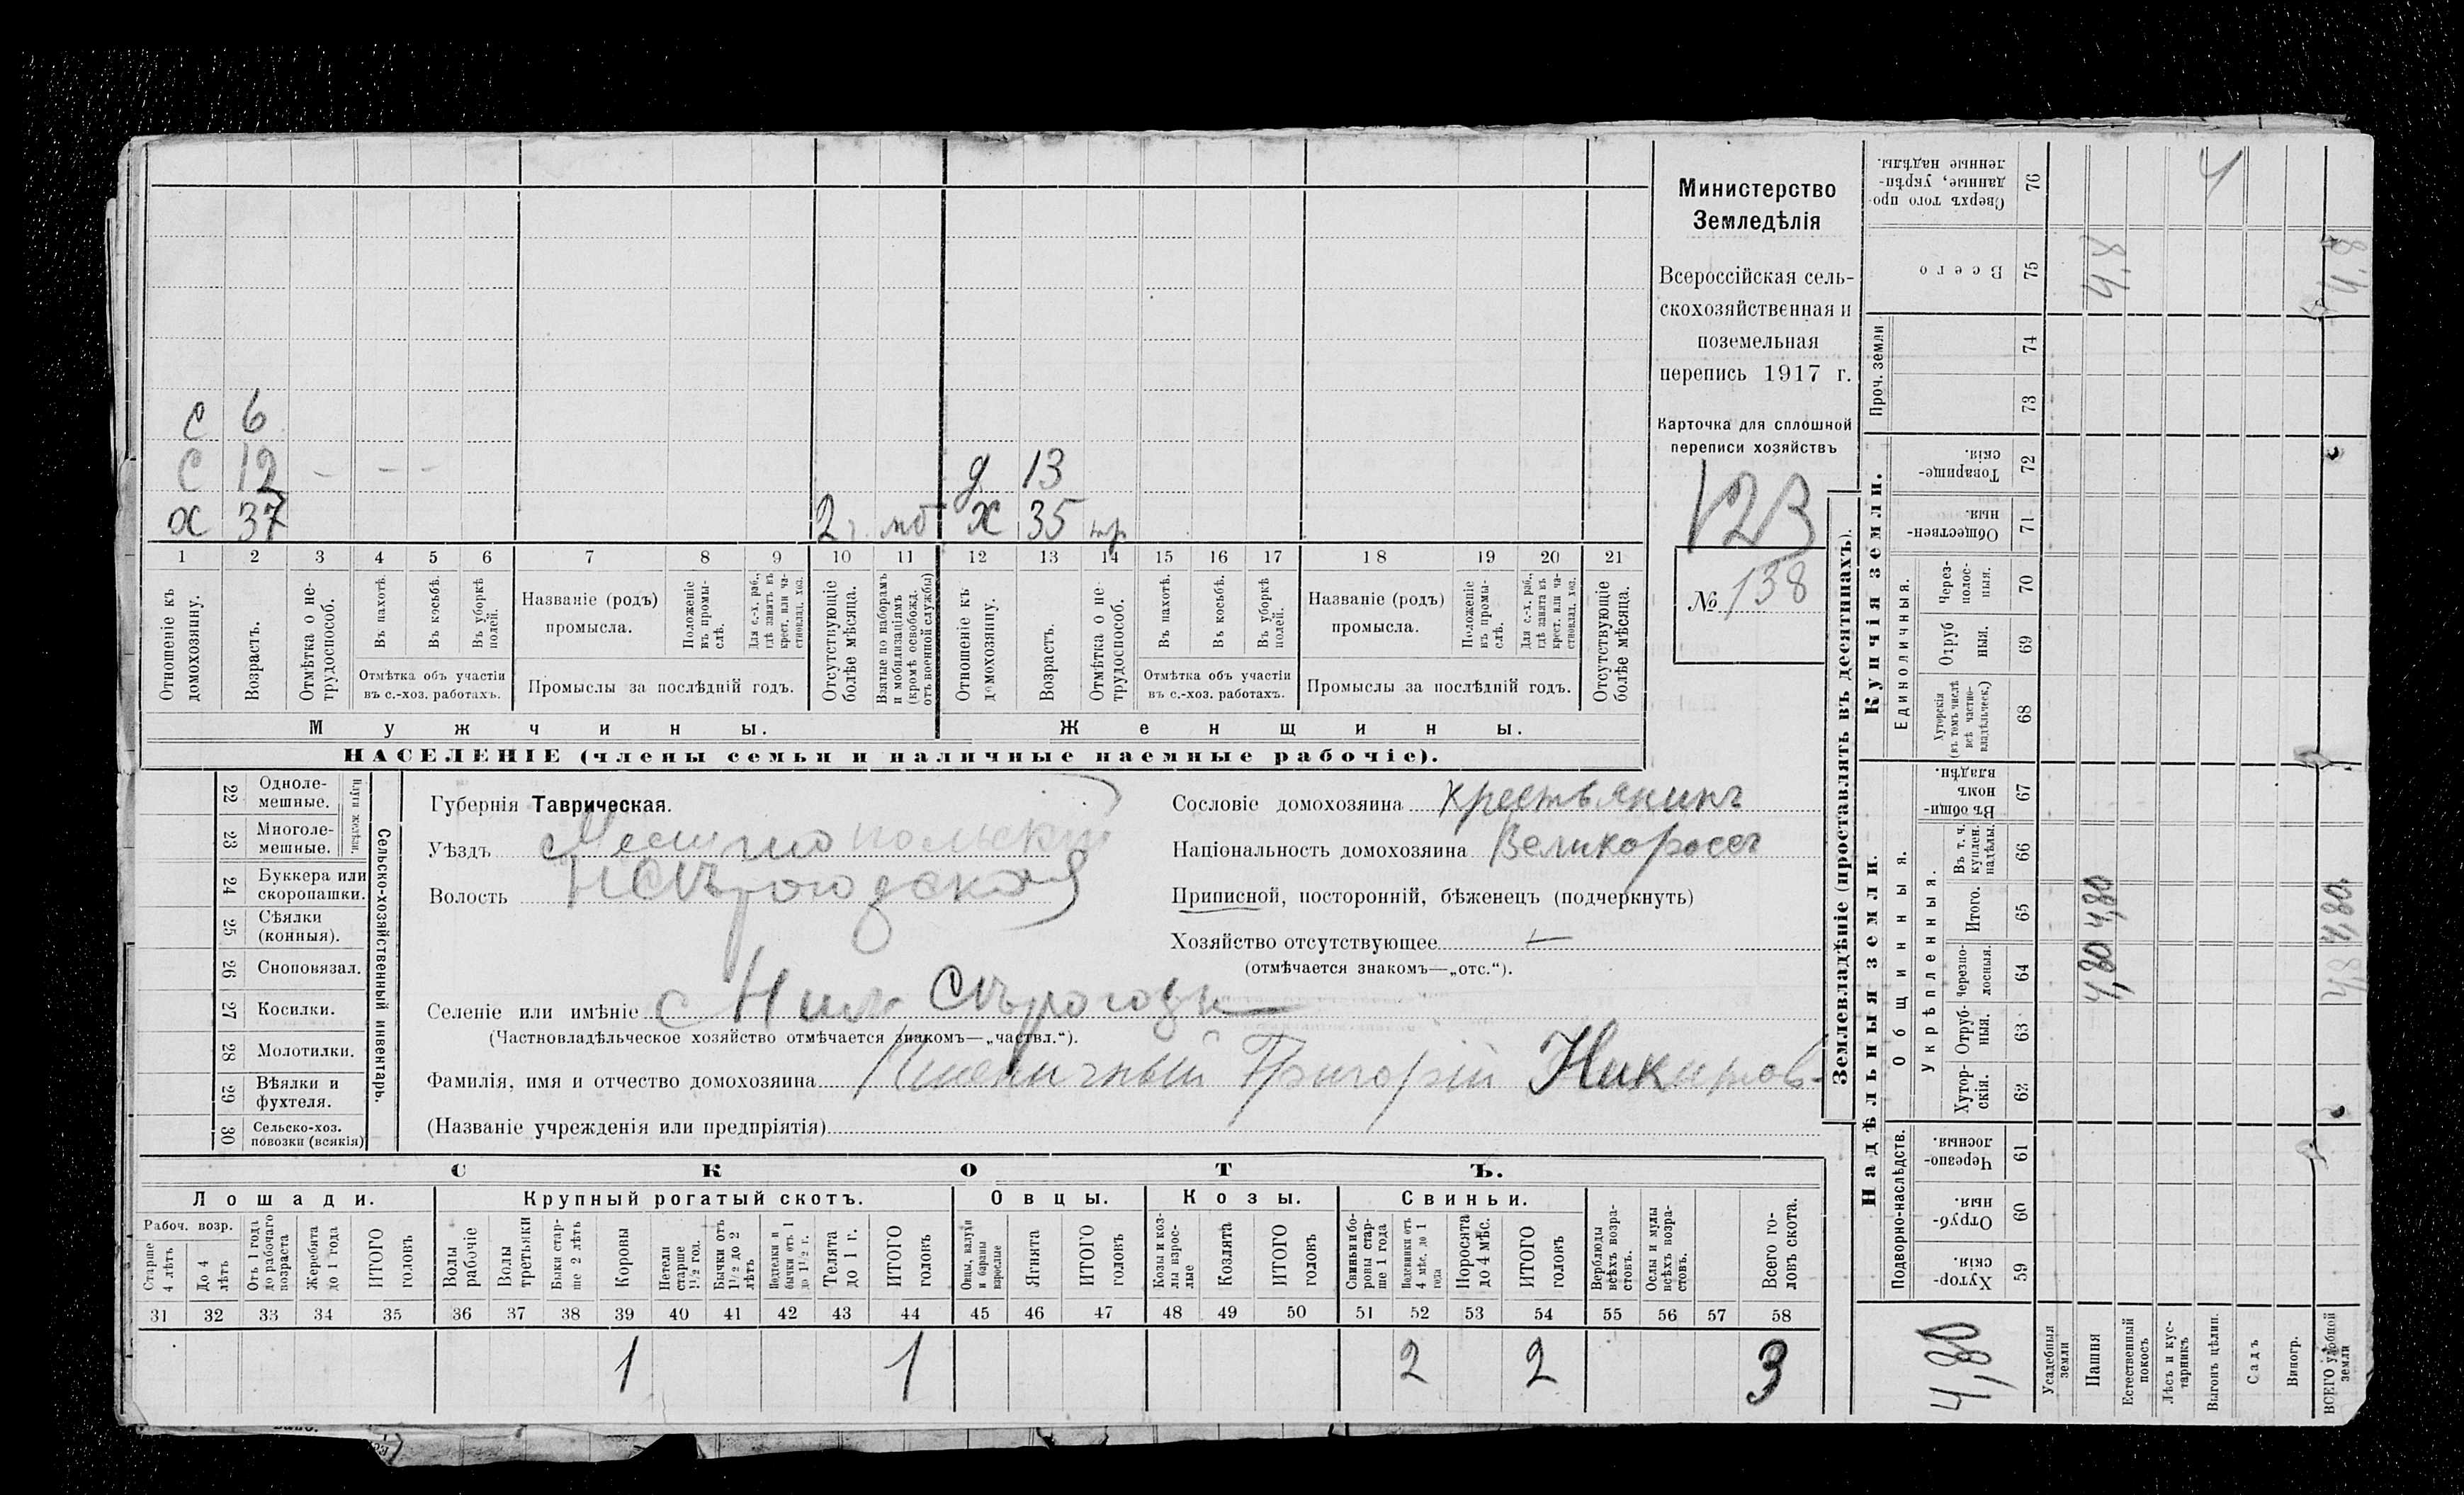 с 6
с 12 - - -
х 37 2 г. мб
д 13
х 35 нр
1 2 3 4 5 6 7 8 9 10 11 12 13 14 15 16 17 18 19 20 21
Отношеніе къ домохозяину.
Возрастъ.
Отмѣтка о не-
трудоспособ.
Въ пахотѣ.
Въ косьбѣ.
Въ уборкѣ полей.
Отмѣтка объ участіи
въ с.-хоз. работахъ.
Названіе (родъ)
промысла.
Положеніе
въ промы-
слѣ.
Для с.-х. раб.,
гдѣ занятъ въ
крест. или ча-
стновлад. хоз.
Промыслы за послѣдній годъ.
Отсутствующіе
болѣе мѣсяца.
Взятые по наборамъ
и мобилизаціямъ
(кромѣ освобожд.
отъ военной службы)
Отношеніе къ
домохозяину.
Возрастъ.
Отмѣтка о не-
трудоспособ.
Въ пахотѣ.
Въ косьбѣ.
Въ уборкѣ
полей.
Отмѣтка объ участіи
въ с.-хоз. работахъ.
Названіе (родъ)
промысла.
Положеніе
въ промы-
слѣ.
Для с.-х. раб.,
гдѣ занята въ
крест. или ча-
стновлад. хоз.
Промыслы за послѣдній годъ.
Отсутствующіе
болѣе мѣсяца.
Мужчины.
Женщины.
НАСЕЛЕНІЕ (члены семьи и наличные наемные рабочіе).
Министерство
Земледѣлія
Всероссійская сель-
скохозяйственная и
поземельная
перепись 1917 г.
Карточка для сплошной
переписи хозяйствъ
123
№ 138
22 Одноле-
мешные.
23 Многоле-
мешные.
Плуги желѣзн.
24 Буккера или
скоропашки.
25 Сѣялки
(конныя).
26 Сноповязал.
27 Косилки.
28 Молотилки.
29 Вѣялки и
фухтеля.
30 Сельско-хоз.
повозки (всякія)
Сельско-хозяйственный инвентарь.
Губернія Таврическая.
Уѣздъ Мелитопольскій
Волость НСѣрогозская
Сословіе домохозяина крестьянинъ
Національность домохозяина Великороссъ
Приписной, посторонній, бѣженецъ (подчеркнуть)
Хозяйство отсутствующее —
(отмѣчается знакомъ—„отс.“).
Селеніе или имѣніе с Ниж Сѣрогозы
(Частновладѣльческое хозяйство отмѣчается знакомъ—„частвл.“).
Фамилія, имя и отчество домохозяина Пшеничный Григорій Никиров-
(Названіе учрежденія или предпріятія)
СКОТЪ.
Лошади.
Крупный рогатый скотъ.
Овцы.
Козы.
Свиньи.
Рабоч. возр.
Старше
4 лѣтъ
До 4
лѣтъ
Отъ 1 года
до рабочаго
возраста
Жеребята
до 1 года
ИТОГО
головъ
Волы
рабочіе
Волы
третьяки
Быки стар-
ше 2 лѣтъ
Коровы
Нетели
старше
1½ год.
Бычки отъ
1½ до 2
лѣтъ
Подтелки и
бычки отъ 1
до 1½ г.
Телята
до 1 г.
ИТОГО
головъ
Овцы, валухи
и бараны
взрослые
Ягнята
ИТОГО
головъ
Козы и коз-
лы взрос-
лые
Козлята
ИТОГО
головъ
Свиньи и бо-
ровы стар-
ше 1 года
Подсвинки отъ
4 мѣс. до 1
года
Поросята
до 4 мѣс.
ИТОГО
головъ
Верблюды
всѣхъ возра-
стовъ.
Ослы и мулы
всѣхъ возра-
стовъ.
Всего го-
ловъ скота.
31 32 33 34 35 36 37 38 39 40 41 42 43 44 45 46 47 48 49 50 51 52 53 54 55 56 57 58
1 1 2 2 3
Землевладѣніе (проставлять въ десятинахъ).
Надѣльныя земли.
Купчія земли.
Проч. земли
Подворно-наслѣдств.
Общинныя.
Укрѣпленныя.
Единоличныя.
Хутор-
скія.
59
Отруб-
ныя.
60
Черезпо-
лосныя.
61
Хутор-
скія.
62
Отруб-
ныя.
63
Черезпо-
лосныя.
64
Итого.
65
Въ т. ч.
куплен.
надѣлы.
66
Въ общин-
номъ
владѣн.
67
Хуторскія
(въ томъ числѣ
всѣ частно-
владѣльческ.)
68
Отруб
ныя.
69
Через-
полос-
ныя.
70
Обществен-
ныя.
71
Товарище-
скія.
72
73
74
Всего
75
Сверхъ того про-
данные, укрѣп-
ленные надѣлы.
76
4,80
Усадебныя
земли
Пашня
4,80 4,80 4,8
Естественный
покосъ
Лѣсъ и кус-
тарникъ
Выгонъ цѣлин.
Садъ
Виногр.
ВСЕГО удобной
земли
4,8 4,80 4,8